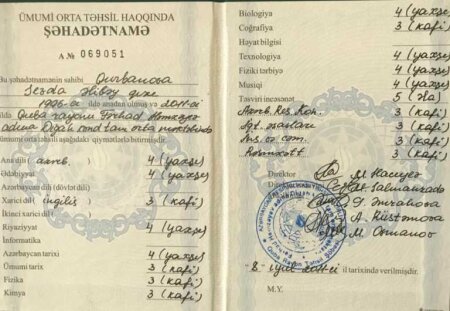 ÜMUMİ ORTA TƏHSİL HAQQINDA
ŞƏHADƏTNAMƏ
A № 069051
Bu şəhadətnamənin sahibi Qurbanova
qızı
1996-cı ildə anadan olmuş və 2011-ci
ildə Quba rayonu Fərhad
adına kənd tam orta məktəbində
aşağıdakı qiymətlərlə bitirmişdir.
Ana dili ( azərb. ) 4 (yaxşı)
Ədəbiyyat 4 (yaxşı)
Azərbaycan dili (dövlət dili)
Xarici dil ( ingilis ) 3 (kafi)
İkinci xarici dil ( )
Riyaziyyat 4 (yaxşı)
İnformatika
Azərbaycan tarixi 4 (yaxşı)
Ümumi tarix 3 (kafi)
Fizika 3 (kafi)
Kimya 3 (kafi)
Biologiya 4 (yaxşı)
Coğrafiya 3 (kafi)
Həyat bilgisi
Texnologiya 4 (yaxşı)
Fiziki tərbiyə 4 (yaxşı)
Musiqi 4 (yaxşı)
Təsviri incəsənət 5 (əla)
Azərb. Res. Kon. 3 (kafi)
İqt. əsasları 3 (kafi)
İns. və cəm. 3 (kafi)
3 (kafi)
Direktor M. Hacıyev
Salmanzadə
İmrahova
A. Rüstəmova
M. Osmanov
"8" iyul 2011-ci il tarixində verilmişdir.
M.Y.